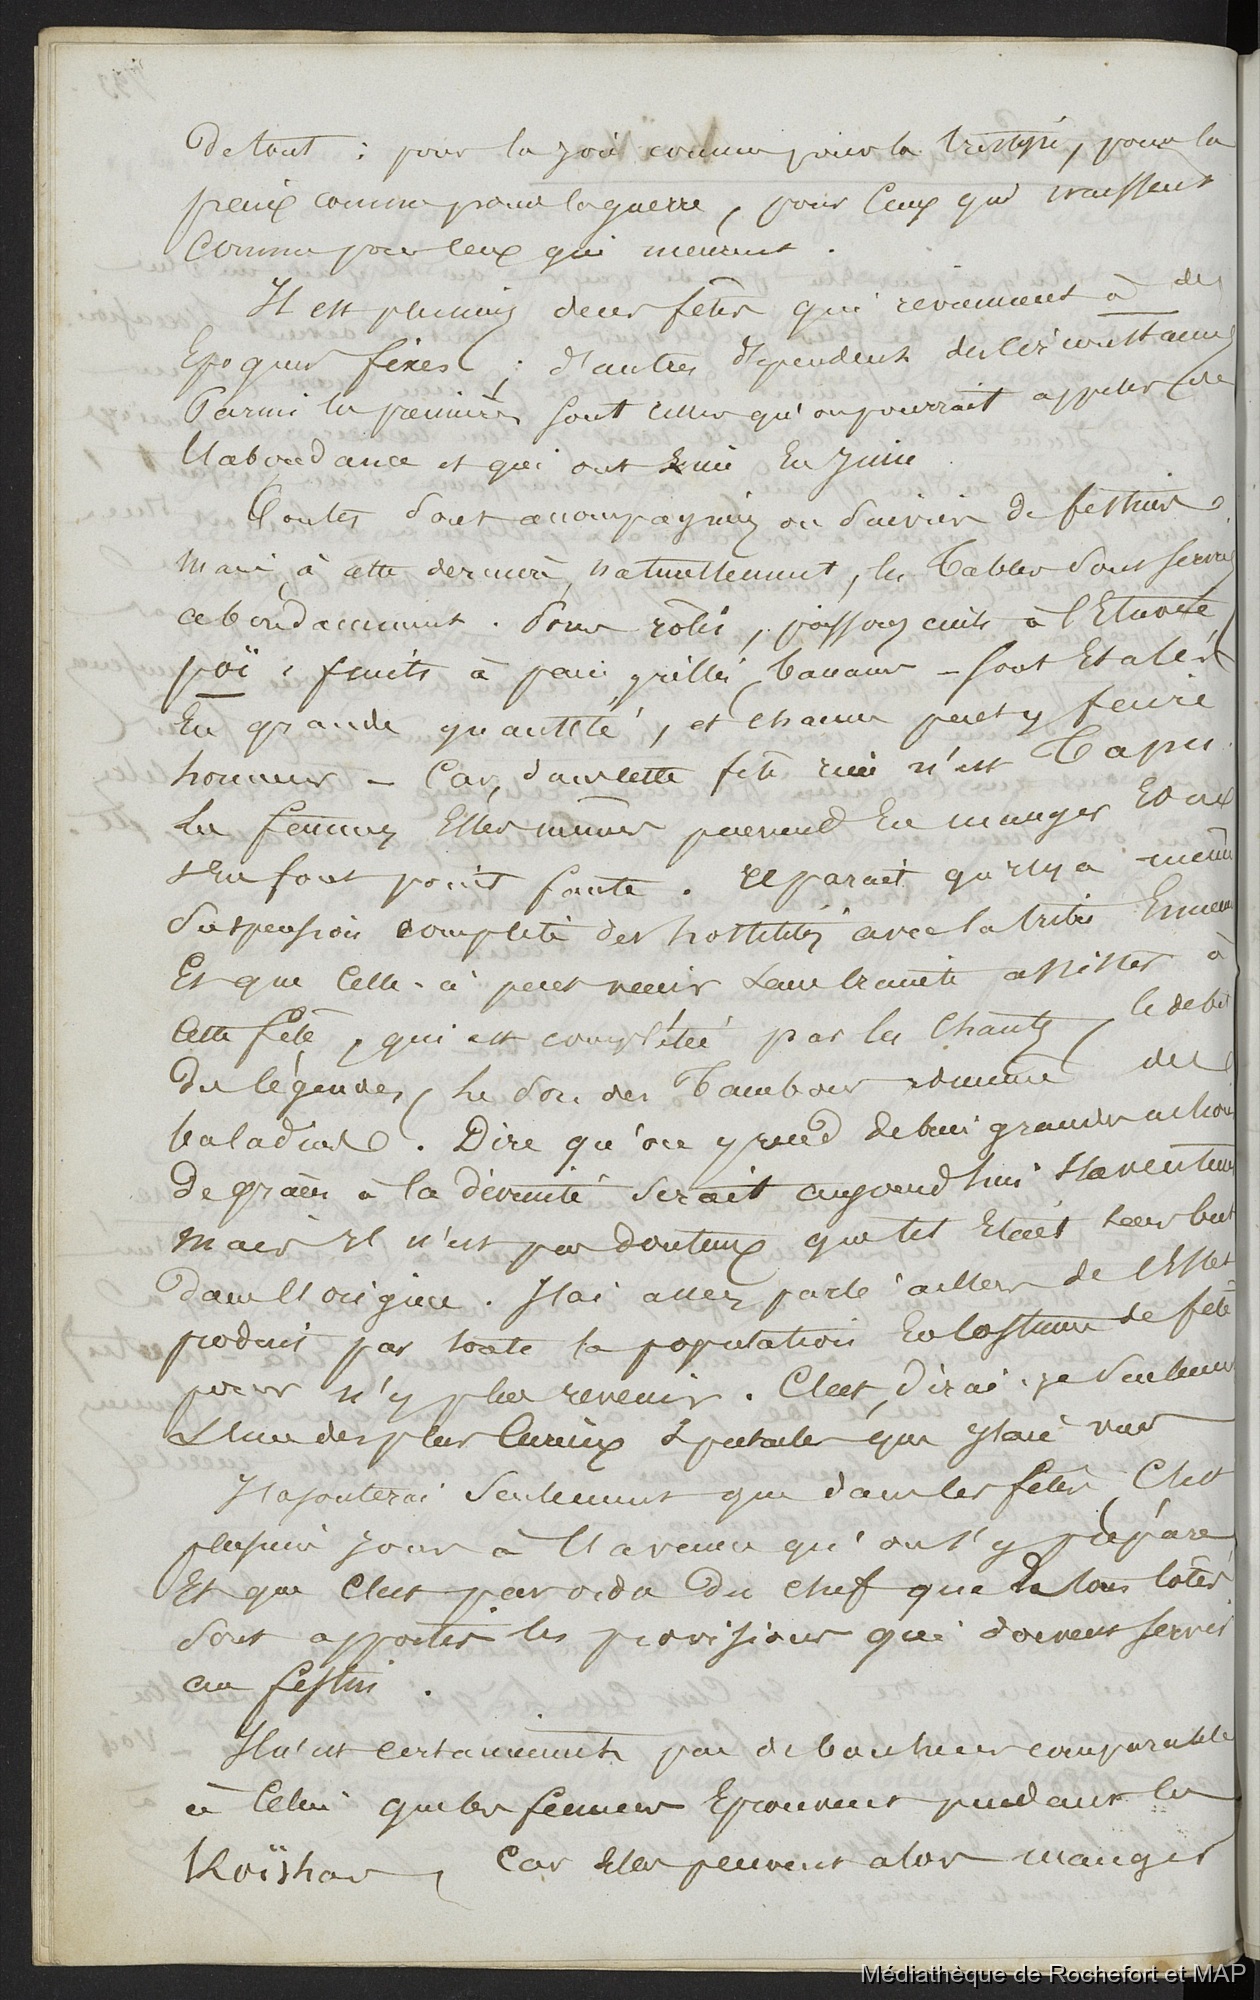 de tout : pour la joie comme pour la tristesse, pour la
paix comme pour la guerre, pour ceux qui naissent
comme pour ceux qui meurent.
Il est plusieurs de ces fêtes qui reviennent à des
Epoques fixes ; d'autres dependent des circonstances
Parmi les premières sont celles qu'on pourrait appeler de
l'abondance et qui ont lieu En Juin
Toutes sont accompagnées ou suivies de festins
mais à cette dernière, naturellement, les Tables sont servies
abondamment. Porcs rotis, poissons cuits à l'Etuvée
poï, fruits à pain grillés, bananes – sont Etalés
En grande quantité, et chacun peut y faire
honneur – Car, dans cette fête rien n'est Tapu.
Les femmes Elles mêmes peuvent En manger Et ne
s'En font point faute. Il parait qu'il y a même
suspension complète des hostilités avec la tribu Ennemie
Et que celle-ci peut venir sans crainte assister à
cette fête, qui est complétée par les Chants, le debit
de légendes, le son des Tambours comme des
baladins. Dire qu'on y rend de bien grandes actions
de grâces à la divinité serait aujourd'hui s'aventurer
mais Il n'est pas douteux que tel Etait leur but
dans l'origine. J'ai assez parlé ailleurs de l'Effet
produit par toute la population En Costume de fête
pour n'y plus revenir. C'est, dirai-je seulement
l'un des plus Curieux spectacles que j'aie vus
J'ajouterai seulement que dans les fêtes C'est
plusieurs jours à l'avance qu'on s'y prépare
Et que C'est par ordre du chef que de tous côtés
sont apportées les provisions qui doivent servir
au festin.
Il n'est certainement pas de bonheur comparable
à Celui que les femmes Eprouvent pendant les
Koïkas, Car Elles peuvent alors manger
Médiathèque de Rochefort et MAP